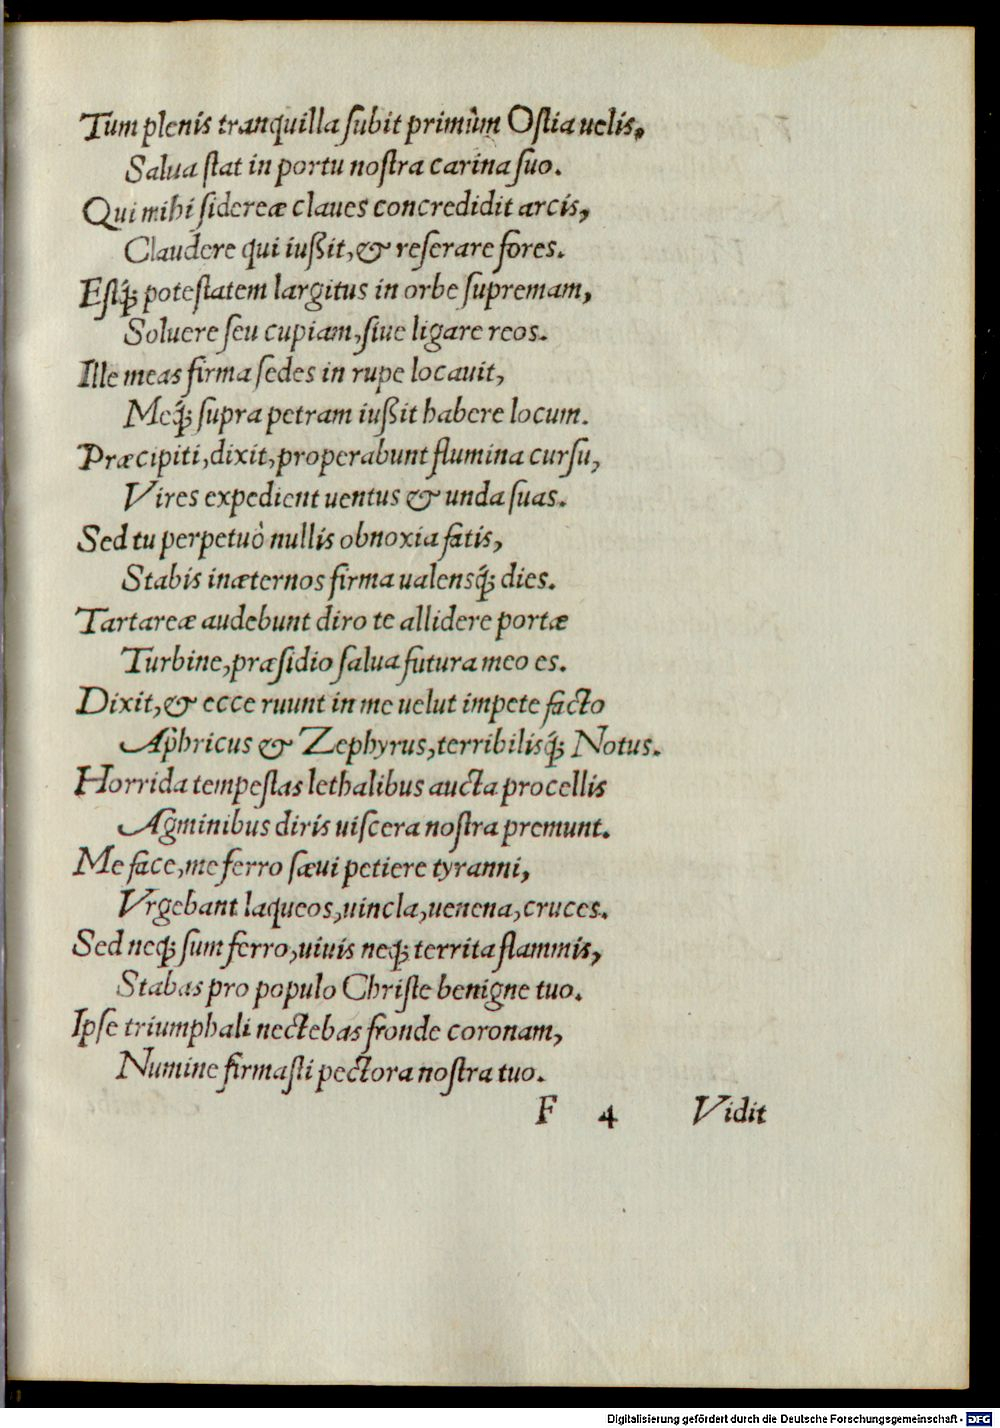 Tum plenis tranquilla ſubit primùm Oſtia uelis,
Salua ſtat in portu noſtra carina ſuo.
Qui mihi ſidereæ claues concredidit arcis,
Claudere qui iußit, & reſerare fores.
Eſtq́; poteſtatem largitus in orbe ſupremam,
Soluere ſeu cupiam, ſiue ligare reos.
Ille meas firma ſedes in rupe locauit,
Meq́; ſupra petram iußit habere locum.
Præcipiti, dixit, properabunt flumina curſu,
Vires expedient uentus & unda ſuas.
Sed tu perpetuò nullis obnoxia fatis,
Stabis inæternos firma ualensq́; dies.
Tartareæ audebunt diro te allidere portæ
Turbine, præſidio ſalua futura meo es.
Dixit, & ecce ruunt in me uelut impete facto
Aphricus & Zephyrus, terribilisq́; Notus.
Horrida tempeſtas lethalibus aucta procellis
Agminibus diris uiſcera noſtra premunt.
Me face, me ferro ſæui petiere tyranni,
Vrgebant laqueos, uincla, uenena, cruces.
Sed neq; ſum ferro, uiuis neq; territa flammis,
Stabas pro populo Chriſte benigne tuo.
Ipſe triumphali nectebas fronde coronam,
Numine firmaſti pectora noſtra tuo.
F 4 Vidit
Digitalisierung gefördert durch die Deutsche Forschungsgemeinschaft - DFG